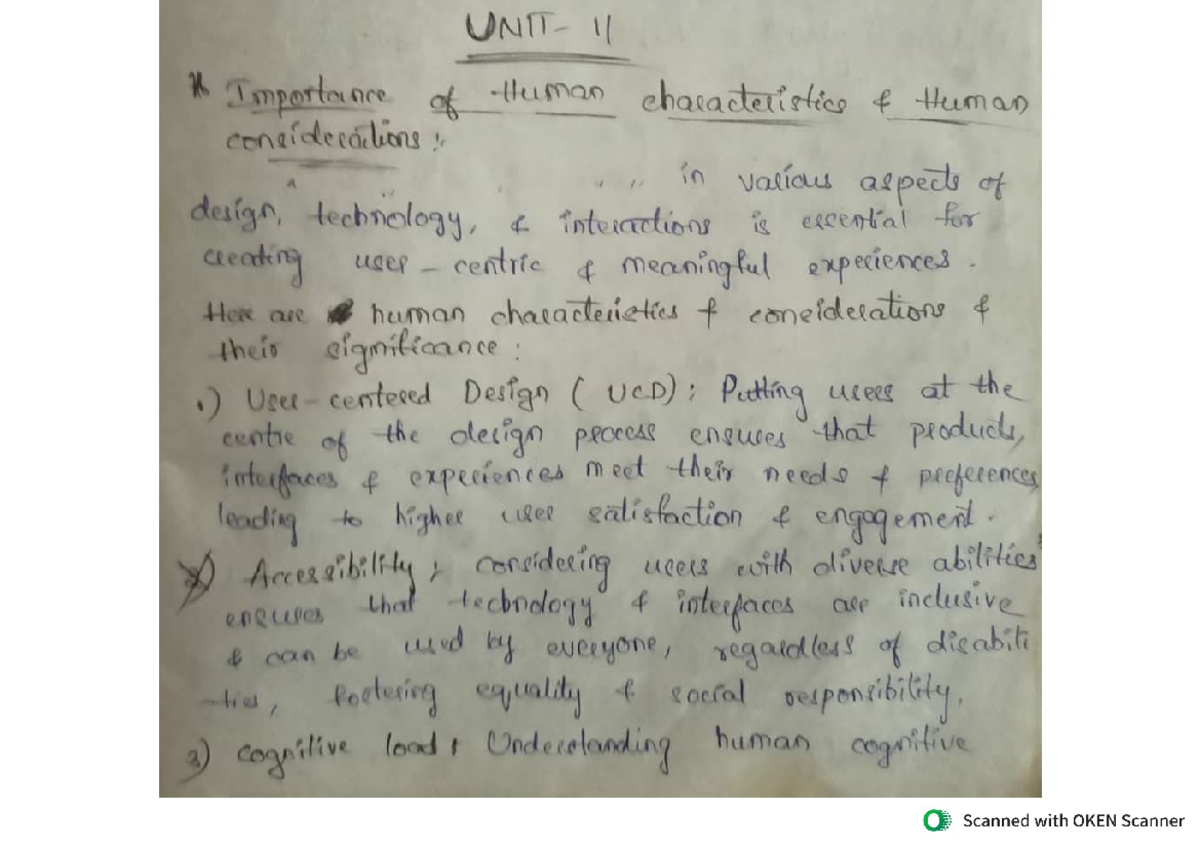 UNIT - II
* Importance of Human characteristics & Human
considerations :-
" " in various aspects of
design, technology, & interactions is essential for
creating user - centric & meaningful experiences.
Here are human characteristics & considerations &
their significance :
.) User-centered Design ( UCD) : Putting users at the
centre of the design process ensures that products,
interfaces & experiences meet their needs & preferences,
leading to higher user satisfaction & engagement.
2) Accessibility : considering users with diverse abilities
ensures that technology & interfaces are inclusive
& can be used by everyone, regardless of disabiti
-ties, fostering equality & social responsibility.
3) cognitive load : Understanding human cognitive
Scanned with OKEN Scanner